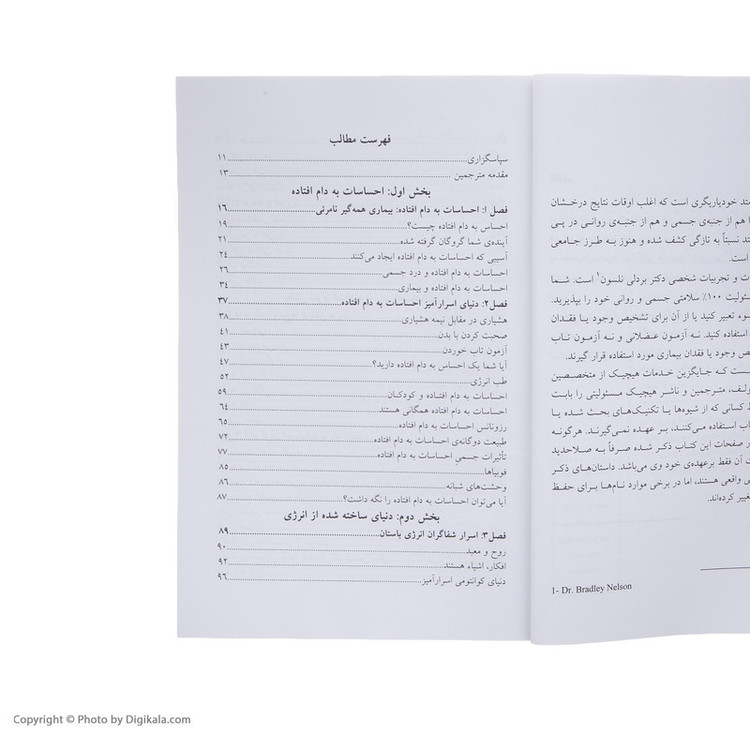 متد خودیاریگری است که اغلب اوقات نتایج درخشان
هم از جنبه‌ی جسمی و هم از جنبه‌ی روانی در پی
نسبتاً به تازگی کشف شده و هنوز به طرز جامعی
است.
و تجربیات شخصی دکتر بردلی نلسون۱ است. شما
۱۰۰٪ سلامتی جسمی و روانی خود را بپذیرید.
تعبیر کنید یا از آن برای تشخیص وجود یا فقدان
استفاده کنید. نه آزمون عضلانی و نه آزمون تاب
وجود یا فقدان بیماری مورد استفاده قرار گیرند.
که جایگزین خدمات هیچیک از متخصصین
مترجمین و ناشر هیچیک مسئولیتی را بابت
کسانی که از شیوه‌ها یا تکنیک‌های بحث شده یا
استفاده می‌کنند، بر عهده نمی‌گیرند. هرگونه
صفحات این کتاب ذکر شده صرفاً به صلاحدید
آن فقط برعهده‌ی خود وی می‌باشد. داستان‌های ذکر
واقعی هستند، اما در برخی موارد نام‌ها برای حفظ
تغییر کرده‌اند.
1- Dr. Bradley Nelson
فهرست مطالب
سپاسگزاری ۱۱
مقدمه مترجمین ۱۳
بخش اول: احساسات به دام افتاده
فصل ۱: احساسات به دام افتاده: بیماری همه‌گیر نامرئی ۱۶
احساس به دام افتاده چیست؟ ۱۹
آینده‌ی شما گروگان گرفته شده ۲۱
آسیبی که احساسات به دام افتاده ایجاد می‌کنند ۲۴
احساسات به دام افتاده و درد جسمی ۲۶
احساسات به دام افتاده و بیماری ۳۴
فصل۲: دنیای اسرارآمیز احساسات به دام افتاده ۳۷
هشیاری در مقابل نیمه هشیاری ۳۸
صحبت کردن با بدن ۴۱
آزمون تاب خوردن ۴۳
آیا شما یک احساس به دام افتاده دارید؟ ۴۷
طب انرژی ۵۲
احساسات به دام افتاده و کودکان ۵۹
احساسات به دام افتاده همگانی هستند ۶۴
رزونانس احساسات به دام افتاده ۶۵
طبیعت دوگانه‌ی احساسات به دام افتاده ۷۲
تأثیرات جسمی احساسات به دام افتاده ۷۷
فوبیاها ۸۵
وحشت‌های شبانه ۸۶
آیا می‌توان احساسات به دام افتاده را نگه داشت؟ ۸۷
بخش دوم: دنیای ساخته شده از انرژی
فصل۳: اسرار شفاگران انرژی باستان ۸۹
روح و معبد ۹۰
افکار، اشیاء هستند ۹۲
دنیای کوانتومی اسرارآمیز ۹۶
Copyright © Photo by Digikala.com